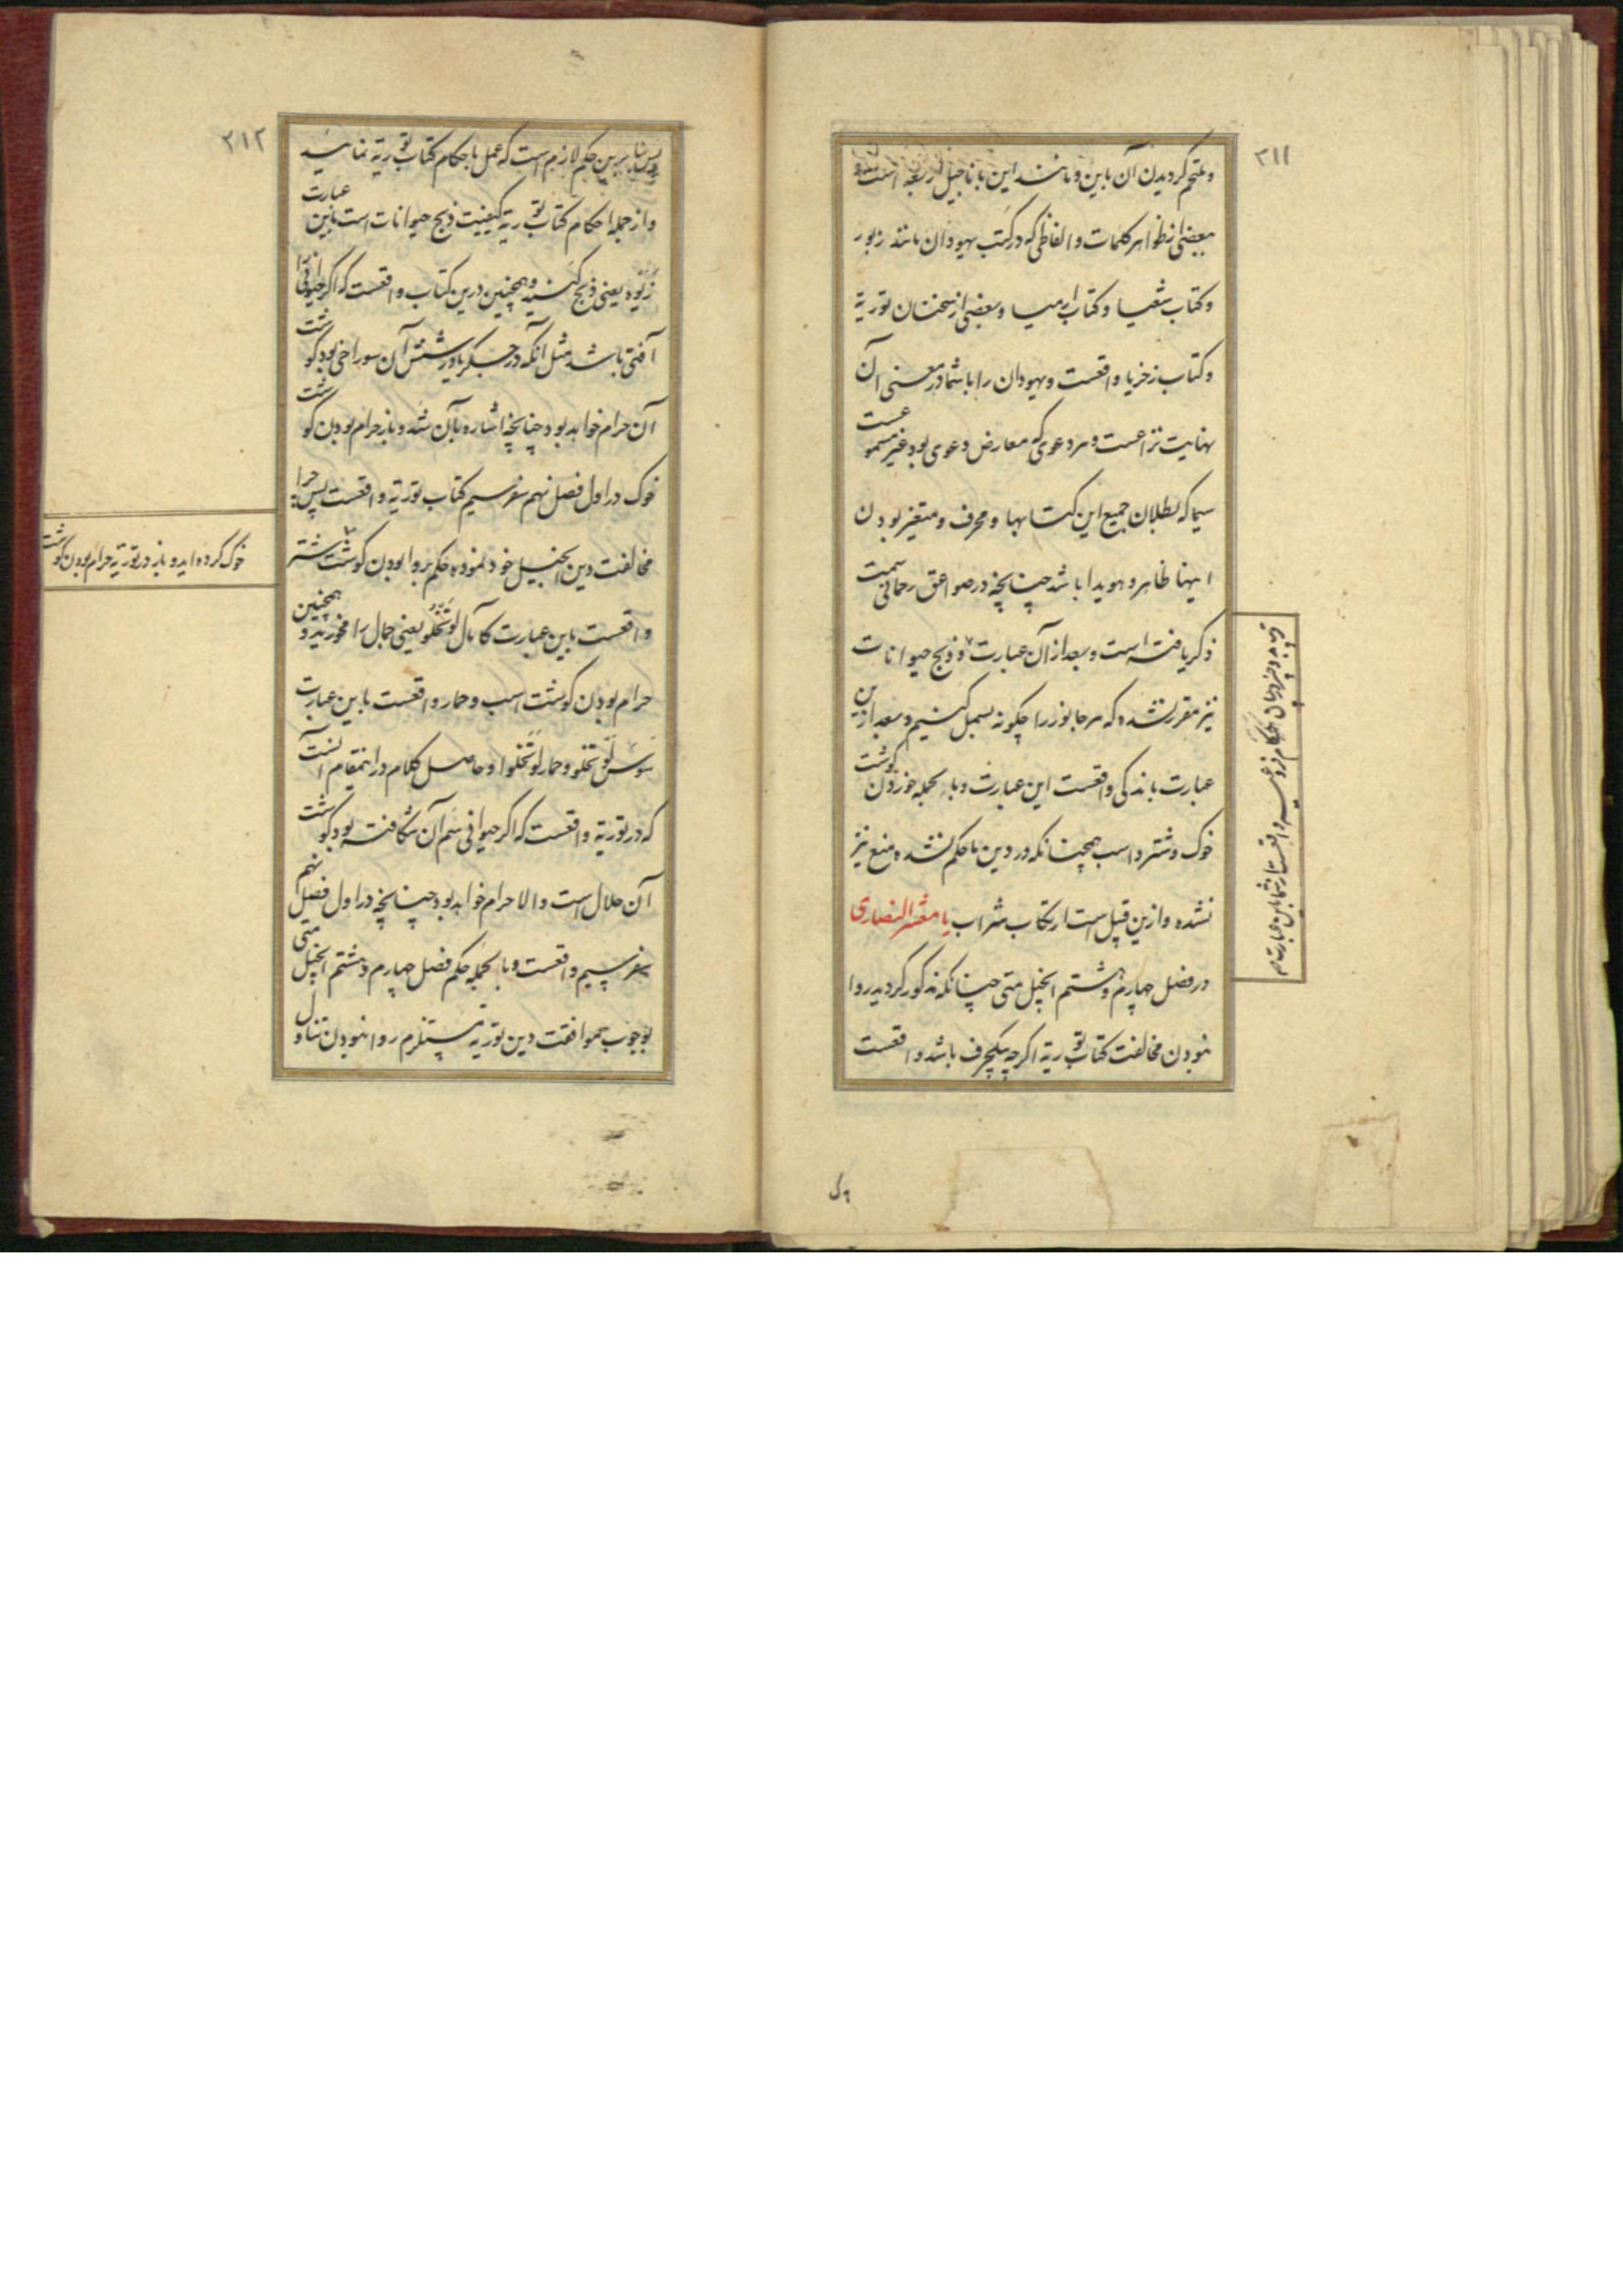 ۲۱۱
و ملتحم کردیدن آن باین و مانند این با ناجیل اربعه است و
بعضی از ظواهر کلمات و الفاظی که در کتب یهودان مانند زبور
و کتاب شعیا و کتاب ارمیا و بعضی از سخنان توریة
و کتاب زخریا واقعست و یهودان را با شما در معنی آن
نهایت نزاعست و هر دعوی که معارض دعوی بود غیر مسموعست
سیما که بطلان جمیع این کتابها و محرف و متغیر بودن
اینها ظاهر و هویدا باشد چنانچه در صواعق رحمانی سمت
ذکر یافته است و بعد از آن عبارت و ذبح حیوانات
نیز مقرر نشده که هر جانور را چکونه بسمل کنیم و بعد ازین
عبارت باندکی واقعست این عبارت و بالجمله خوردن کوشت
خوک و شتر و اسب همچنانکه در دین ما حکم نشده منع نیز
نشده و ازین قبیل است ارتکاب شراب یا معشر النصاری
در فصل چهارم و هشتم انجیل متی چنانکه مذکور کردید روا
نبودن مخالفت کتاب توریة اکرچه یکحرف باشد واقعست
۲۱۲
پس بنا برین حکم لازم است که عمل باحکام کتاب توریة نمائید
و از جمله احکام کتاب توریة کیفیت ذبح حیوانات است باین عبارت
زَبَوه یعنی ذبح کنید و همچنین درین کتاب واقعست که اکر حیوانی را
آفتی باشد مثل آنکه در جکر یا در شش آن سوراخی بود کوشت
آن حرام خواهد بود چنانچه اشاره بآن شد و باز حرام بودن کوشت
خوک در اول فصل نهم سفر سیم کتاب توریة واقعست پس چرا
مخالفت دین انجیل خود نموده حکم بروا بودن کوشت شتر
خوک کرده اید و باز در توریة حرام بودن کوشت
واقعست باین عبارت کامال لو تخلو یعنی جمال را مخورید و همچنین
حرام بودن کوشت اسب و حمار واقعست باین عبارت
سوس لو تخلو و حمار لو تخلوا و حاصل کلام در اینمقام آنست
که در توریة واقعست که اکر حیوانی سم آن شکافته بود کوشت
آن حلال است و الا حرام خواهد بود چنانچه در اول فصل نهم
سفر سیم واقعست و بالجمله حکم فصل چهارم و هشتم انجیل متی
بوجوب موافقت دین توریة مستلزم روا نبودن تناول